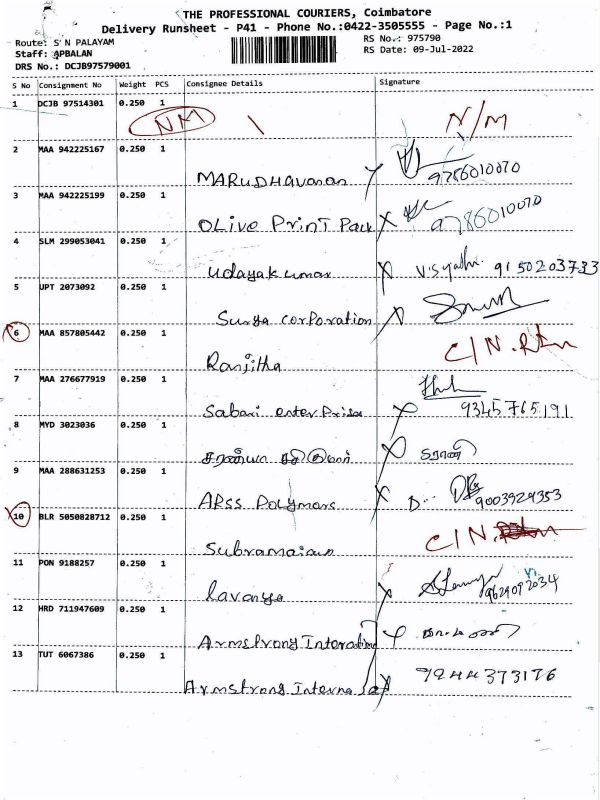 THE PROFESSIONAL COURIERS, Coimbatore
Delivery Runsheet - P41 - Phone No.:0422-3505555 - Page No.:1
Route: S N PALAYAM
RS No.: 975790
Staff: APBALAN
RS Date: 09-Jul-2022
DRS No.: DCJB97579001
S No Consignment No Weight PCS Consignee Details Signature
1 DCJB 97514301 0.250 1 NM N/M
2 MAA 942225167 0.250 1 MARUDHAVanan 9786010070
3 MAA 942225199 0.250 1 OLive Print Pack 9786010070
4 SLM 299053041 0.250 1 Udayakumar 9150203733
5 UPT 2073092 0.250 1 Surya corporation
6 MAA 857805442 0.250 1 Ranjitha C/N.Rtn
7 MAA 276677919 0.250 1 Sabari enterPrise 9345765191
8 MYD 3023036 0.250 1 சரண்யா
9 MAA 288631253 0.250 1 ARSS Polymars D... 9003929353
10 BLR 5050828712 0.250 1 Subramaian C/N.
11 PON 9188257 0.250 1 Lavanya 9629092034
12 HRD 711947609 0.250 1 Armstrong Interation
13 TUT 6067386 0.250 1 Armstrong Interna 9244373176